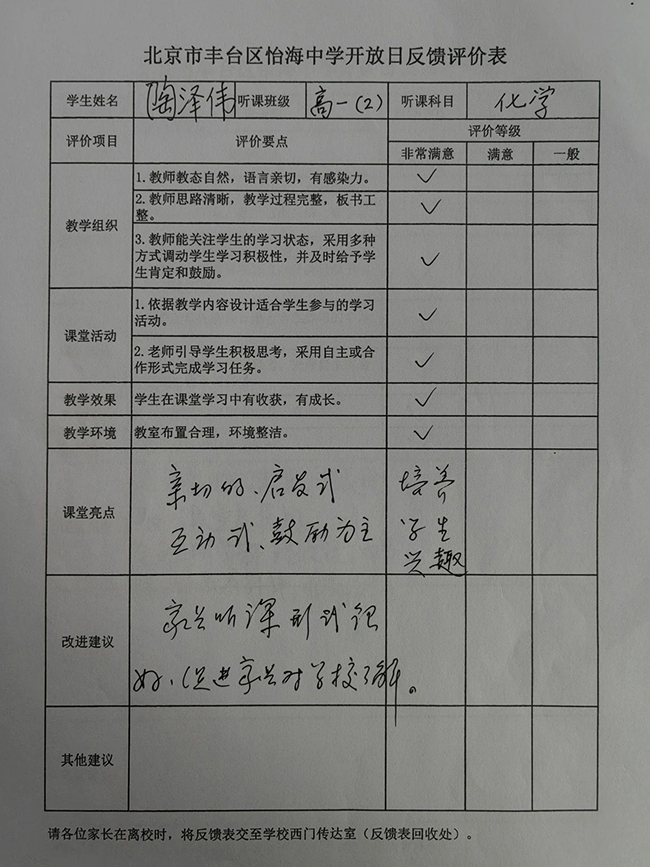 北京市丰台区怡海中学开放日反馈评价表
学生姓名 陶泽伟 听课班级 高一(2) 听课科目 化学
评价项目 评价要点 评价等级
非常满意 满意 一般
教学组织
1.教师教态自然，语言亲切，有感染力。 ✓
2.教师思路清晰，教学过程完整，板书工
整。 ✓
3.教师能关注学生的学习状态，采用多种
方式调动学生学习积极性，并及时给予学
生肯定和鼓励。 ✓
课堂活动
1.依据教学内容设计适合学生参与的学习
活动。 ✓
2.老师引导学生积极思考，采用自主或合
作形式完成学习任务。 ✓
教学效果 学生在课堂学习中有收获，有成长。 ✓
教学环境 教室布置合理，环境整洁。 ✓
课堂亮点
亲切的、启发式
互动式、鼓励为主
培养
学生
兴趣
改进建议
家长听课形式很
好、促进家长对学校了解。
其他建议
请各位家长在离校时，将反馈表交至学校西门传达室（反馈表回收处）。